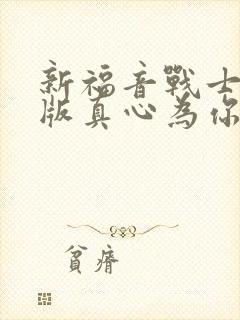 新福音戰士
版真心為你
貧瘠